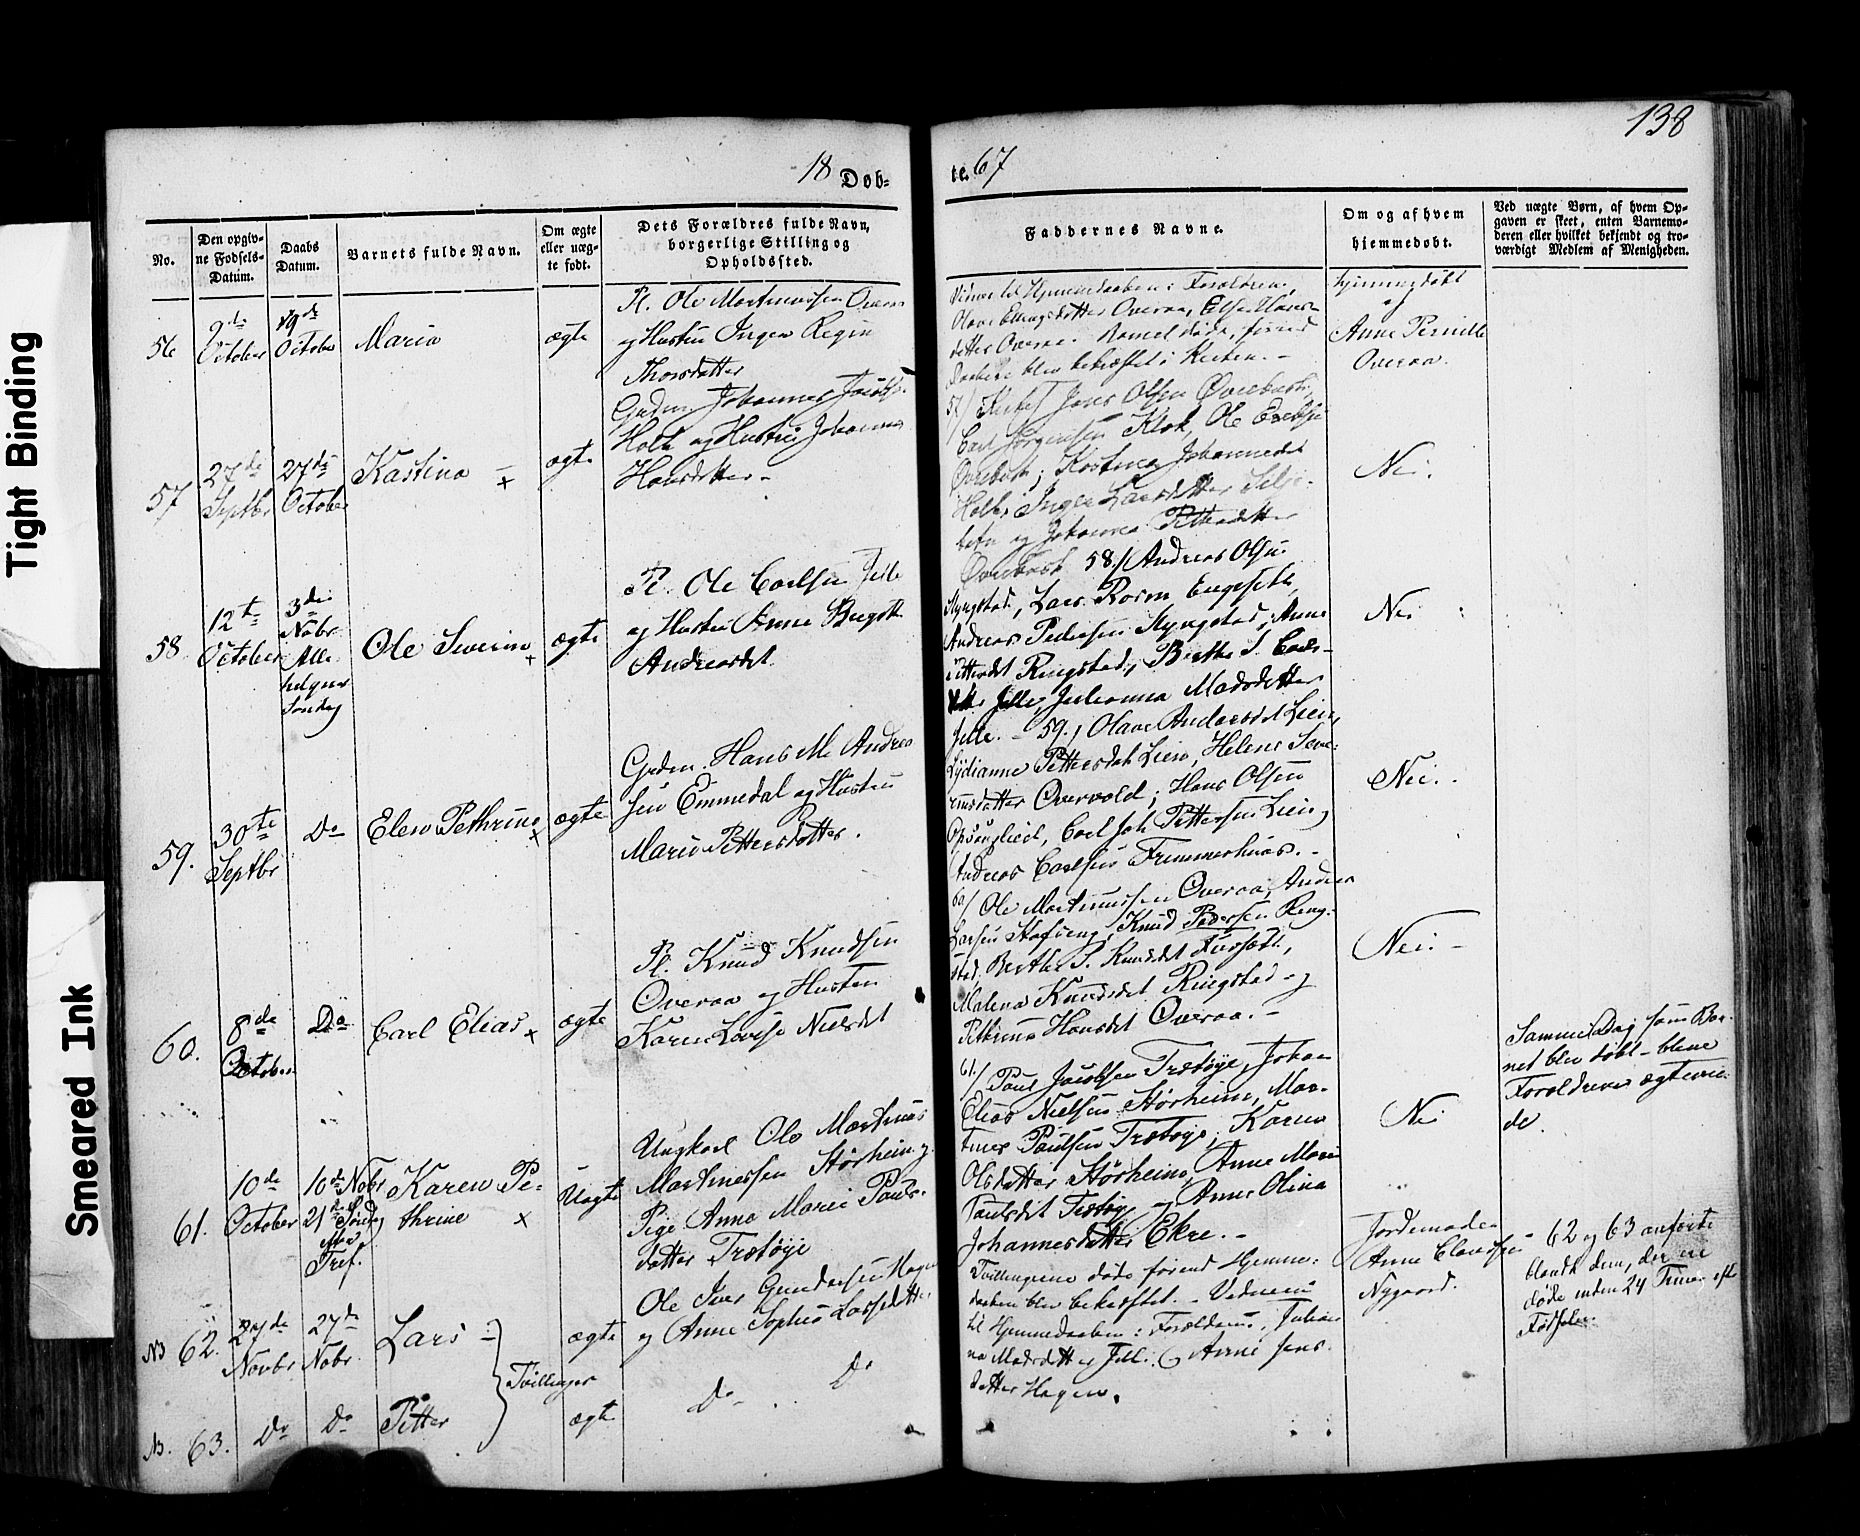 Tight Binding
Smeared Ink
138
18 Døb-
te. 67
No.
Den opgiv-
ne Fødsels-
Datum.
Daabs
Datum.
Barnets fulde Navn.
Om ægte
eller uæg-
te født.
Dets Forældres fulde Navn,
borgerlige Stilling og
Opholdssted.
Faddernes Navne.
Om og af hvem
hjemmedøbt.
Ved uægte Børn, af hvem Op-
gaven er skeet, enten Barnemo-
deren eller hvilket bekjendt og tro-
værdigt Medlem af Menigheden.
56
October
19de
October
Maria
ægte
Pl. Ole Martinussen Overaa
og Hustru Inger Regine
Thorsdatter
til Hjemmedaaben: Forældrene,
Overaa, Else Hans-
datter Overaa. Barnet døde, førend
Daaben blev bekræftet i Kirken. -
hjemmedøbt
af
Anne Pernille
Overaa.
57
27de
Septbr
27de
October
Kastina - x
ægte
Johannes
Holt og Hustru Johanne
Hansdatter -
57/ Jens Olsen
Carl Jørgensen Klok, Ole
Johannesdt
Inger Larsdatter
og Johanna Pettersdatter
Nei.
58
12te
October
3die
Nobr
Alle-
helgens
Søndag
Ole Severin x
ægte
Pl. Ole Carlsen Jelle
og Hustru Anne Birgitte
Andreasdt.
58/ Andreas Olsen
Myngstad, Lars Rasm Engesette,
Andreas Pedersen Myngstad; Anne
Petterdt Ringstad, Birthe S. Carls-
dtr Jelle, Julianna Madsdatter
Jelle. -
Nei
59.
30te
Septbr
Do
Elen Pethrine x
ægte
Grdm. Hans M. Andrea
sen Emmedal og Hustru
Marie Pettersdatter.
59., Olave Andersdt Lien,
Lydianne Pettersdt Lien, Helene Seve-
rinsdatter Overvold; Hans Olsen
Opsanglied, Carl Joh Pettersen Lien,
Andreas Carlsen Fremmerhuus. -
Nei.
60.
8de
October
Do
Carl Elias x
ægte
Pl. Knud Knudsen
Overaa og Hustru
Karen Lovise Nielsdt
60/ Ole Martinussen Overaa, Andrea
Larsen Stafseng, Knud Pedersen Ring-
stad, Berthe S. Knudsdt
Malena Knudsdt Ringstad og
Pethrine Hansdt Overaa. -
Nei. -
61.
10de
October
10de Nobr
21de Søndag
efter
Tref.
Karen Pe-
thrine x
Uægte
Ungkarl Ole Martinus
Martinussen Størheim og
Pige Anne Marie Pauls-
datter Trætøye
61./ Paul Jacobsen Trætøye, Johan
Elias Nielsen Størheim, Mar-
tinus Paulsen Trætøye, Karen
Olsdatter Størheim, Anne Marie
Paulsdt Trætøy og Anne Olina
Johannesdatter Ekre. -
Nei
Samme Dag som Bar-
net blev døbt - bleve
Forældrene ægtevie-
de.
NB 62.
27de
Novbr
27de
Nobr.
Lars -
Tvillinger
ægte
Ole Iver Gundersen Hagen
og Anne Sophie Larsdatter
Tvillingerne døde førend Hjemme-
daaben blev bekræftet. - Vidnerne
til Hjemmedaaben: Forældrene, Julian
na Madsdatter Jelle og Anne Jens-
datter Hagen.
Jordemoder
Anne
Nygaard.
62 og 63 anførte
blandt dem, der ere
døde inden 24 Timer efter
Fødselen.
NB. 63.
Do
Do
Petter
ægte
Do
Do